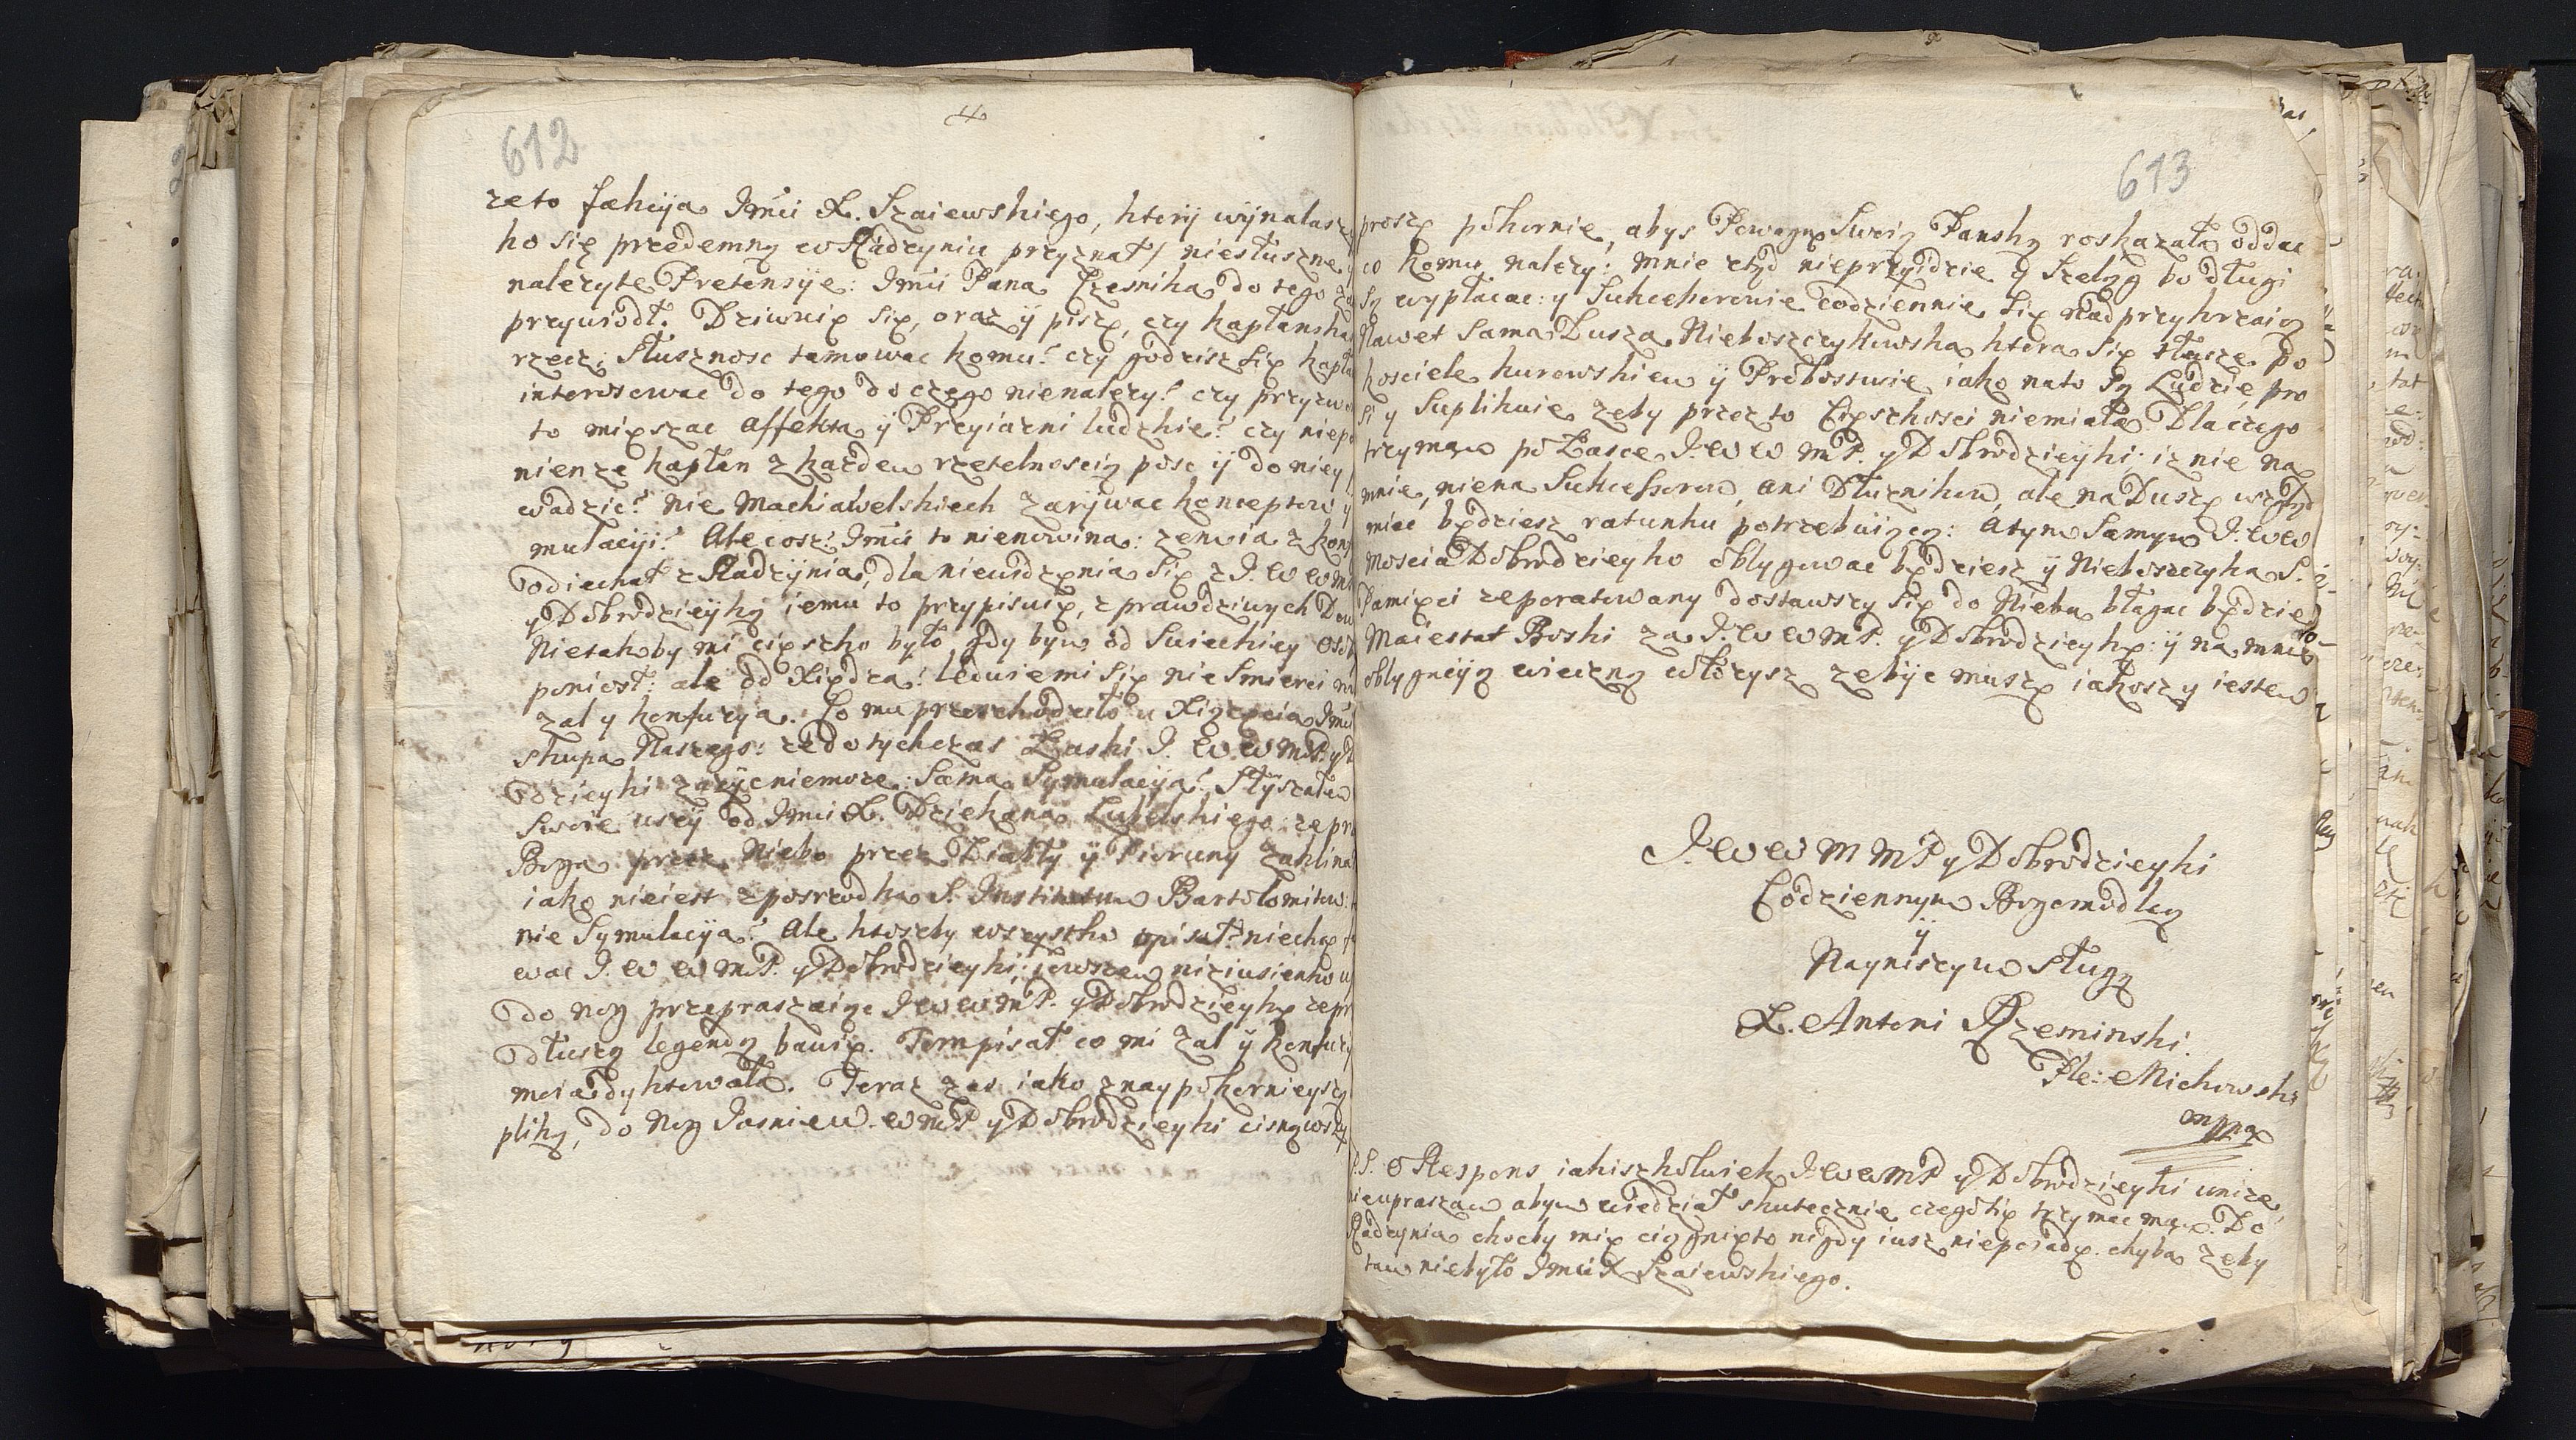 612
ze to fakcyja Jmci X. Szaiewskiego, ktory wynalasz
ko się przedemną w Radzyniu przyznał / niesłuszne
nalezyte Pretensÿe: Jmci Pana Czesnika do tego
przywiodł. Dziwuię się, oraz ÿ piszę, czy kapłanska
rzecz, słusznosc tamowac komu? czy godzisz się kapła
interesowac do tego do czego nienalezy? czy przyzwo
to mięszac affekta ÿ Przyiazni ludzkie? czy niepo
nien ze kapłan z kazdem rzetelnoscią posc ÿ do niey
wadzic? nie Machiawelskiech zarÿwac konceptow ÿ
mulacÿi? Ale cosz? Jmci to nienowina: zem ia z kons
odiechał z Radzÿnia, dla niewidzenia się z J. W W M
y Dobrodzieÿką iemu to przypisuię, z prawdziwych Dow
Nietakby mi cięszko było, gdy bym od Swieckiey osob
poniosł: ale od Xiędza! ledwie mi się nie Smierci
zal y konfuzya. Co mu przeszkodziło u Xiązęcia Jmci
skupa Naszego: ze dotychczas Łaski J. W W M P. y D
dzieyki zazÿc niemoze: sama Symulacÿa? Słÿszałem
Swoie uszÿ od Jmci X. Dziekana Lubelskiego: ze prz
Boga przez Niebo przez Diabły ÿ Pioruny zaklina
iako nieiest z posrzodka S. Institutum Bartolomitow
nie Symulacÿa? Ale ktoszby wszystko opisał? niechcę
wac J. W W M P. y Dobrodzieyki; iowszem niziusienko u
do nog przepraszaiąc J W W M P. y Dobrodzieykę ze pr
dłuszą legendą bawię. Tom pisał co mi zal ÿ konfuzy
moia dyktowała. Teraz zas iako z naypokornieyszą
pliką, do nog Jasniew. W M P y Dobrodzieyki cisnąwszy
613
proszę pokornie, abys Powagą Swoią Panską roskazała oddac
co komu nalezy: mnie ztąd nieprzyidzie ÿ szeląg bo długi
są wypłacac: y Sukcesorowie codziennie się nad przykrzaią
Nawet Sama Dusza Nieboszczykowska ktora się tłucze po
kosciele kurowskiem ÿ Probostwie iako na to są Ludzie, pro
si y suplikuie zeby przez to Cięszkosci niemiała. Dla czego
trzymam po Łasce J W W M P. y Dobrodzieyki: iz nie na
mnie, nie na Sukcessorow, ani Dłuznikow, ale na Duszę wzgląd
miec będziesz ratunku potrzebuiącą: A tym samym J. W W
Moscia Dobrodzieyko obligowac będziesz ÿ Nieboszczyka S.
Pamięci ze poratowany dostawszy się do Nieba błagac będzie
Maiestat Boski za J. W W M P. y Dobrodzieykę: ÿ na mnie
obligacÿą wieczną włozysz ze bÿc muszę iakosz y iestem
J. W W M M P y Dobrodzieyki
Codziennym Bogomodlcą
ÿ
Nayniszym sługą
X. Antoni Rzeminski.
Ple: Michowski
mppa
P.S. O Respons iakiszkolwiek J W W M P y Dobrodzieyki unize,
nie upraszam abym wiedział skutecznie czego się trzymac mam. Do
Radzynia chocby mię ciągnięto nigdy iusz niepoiadę. chyba zeby
tam niebyło Jmci X Szaiewskiego.